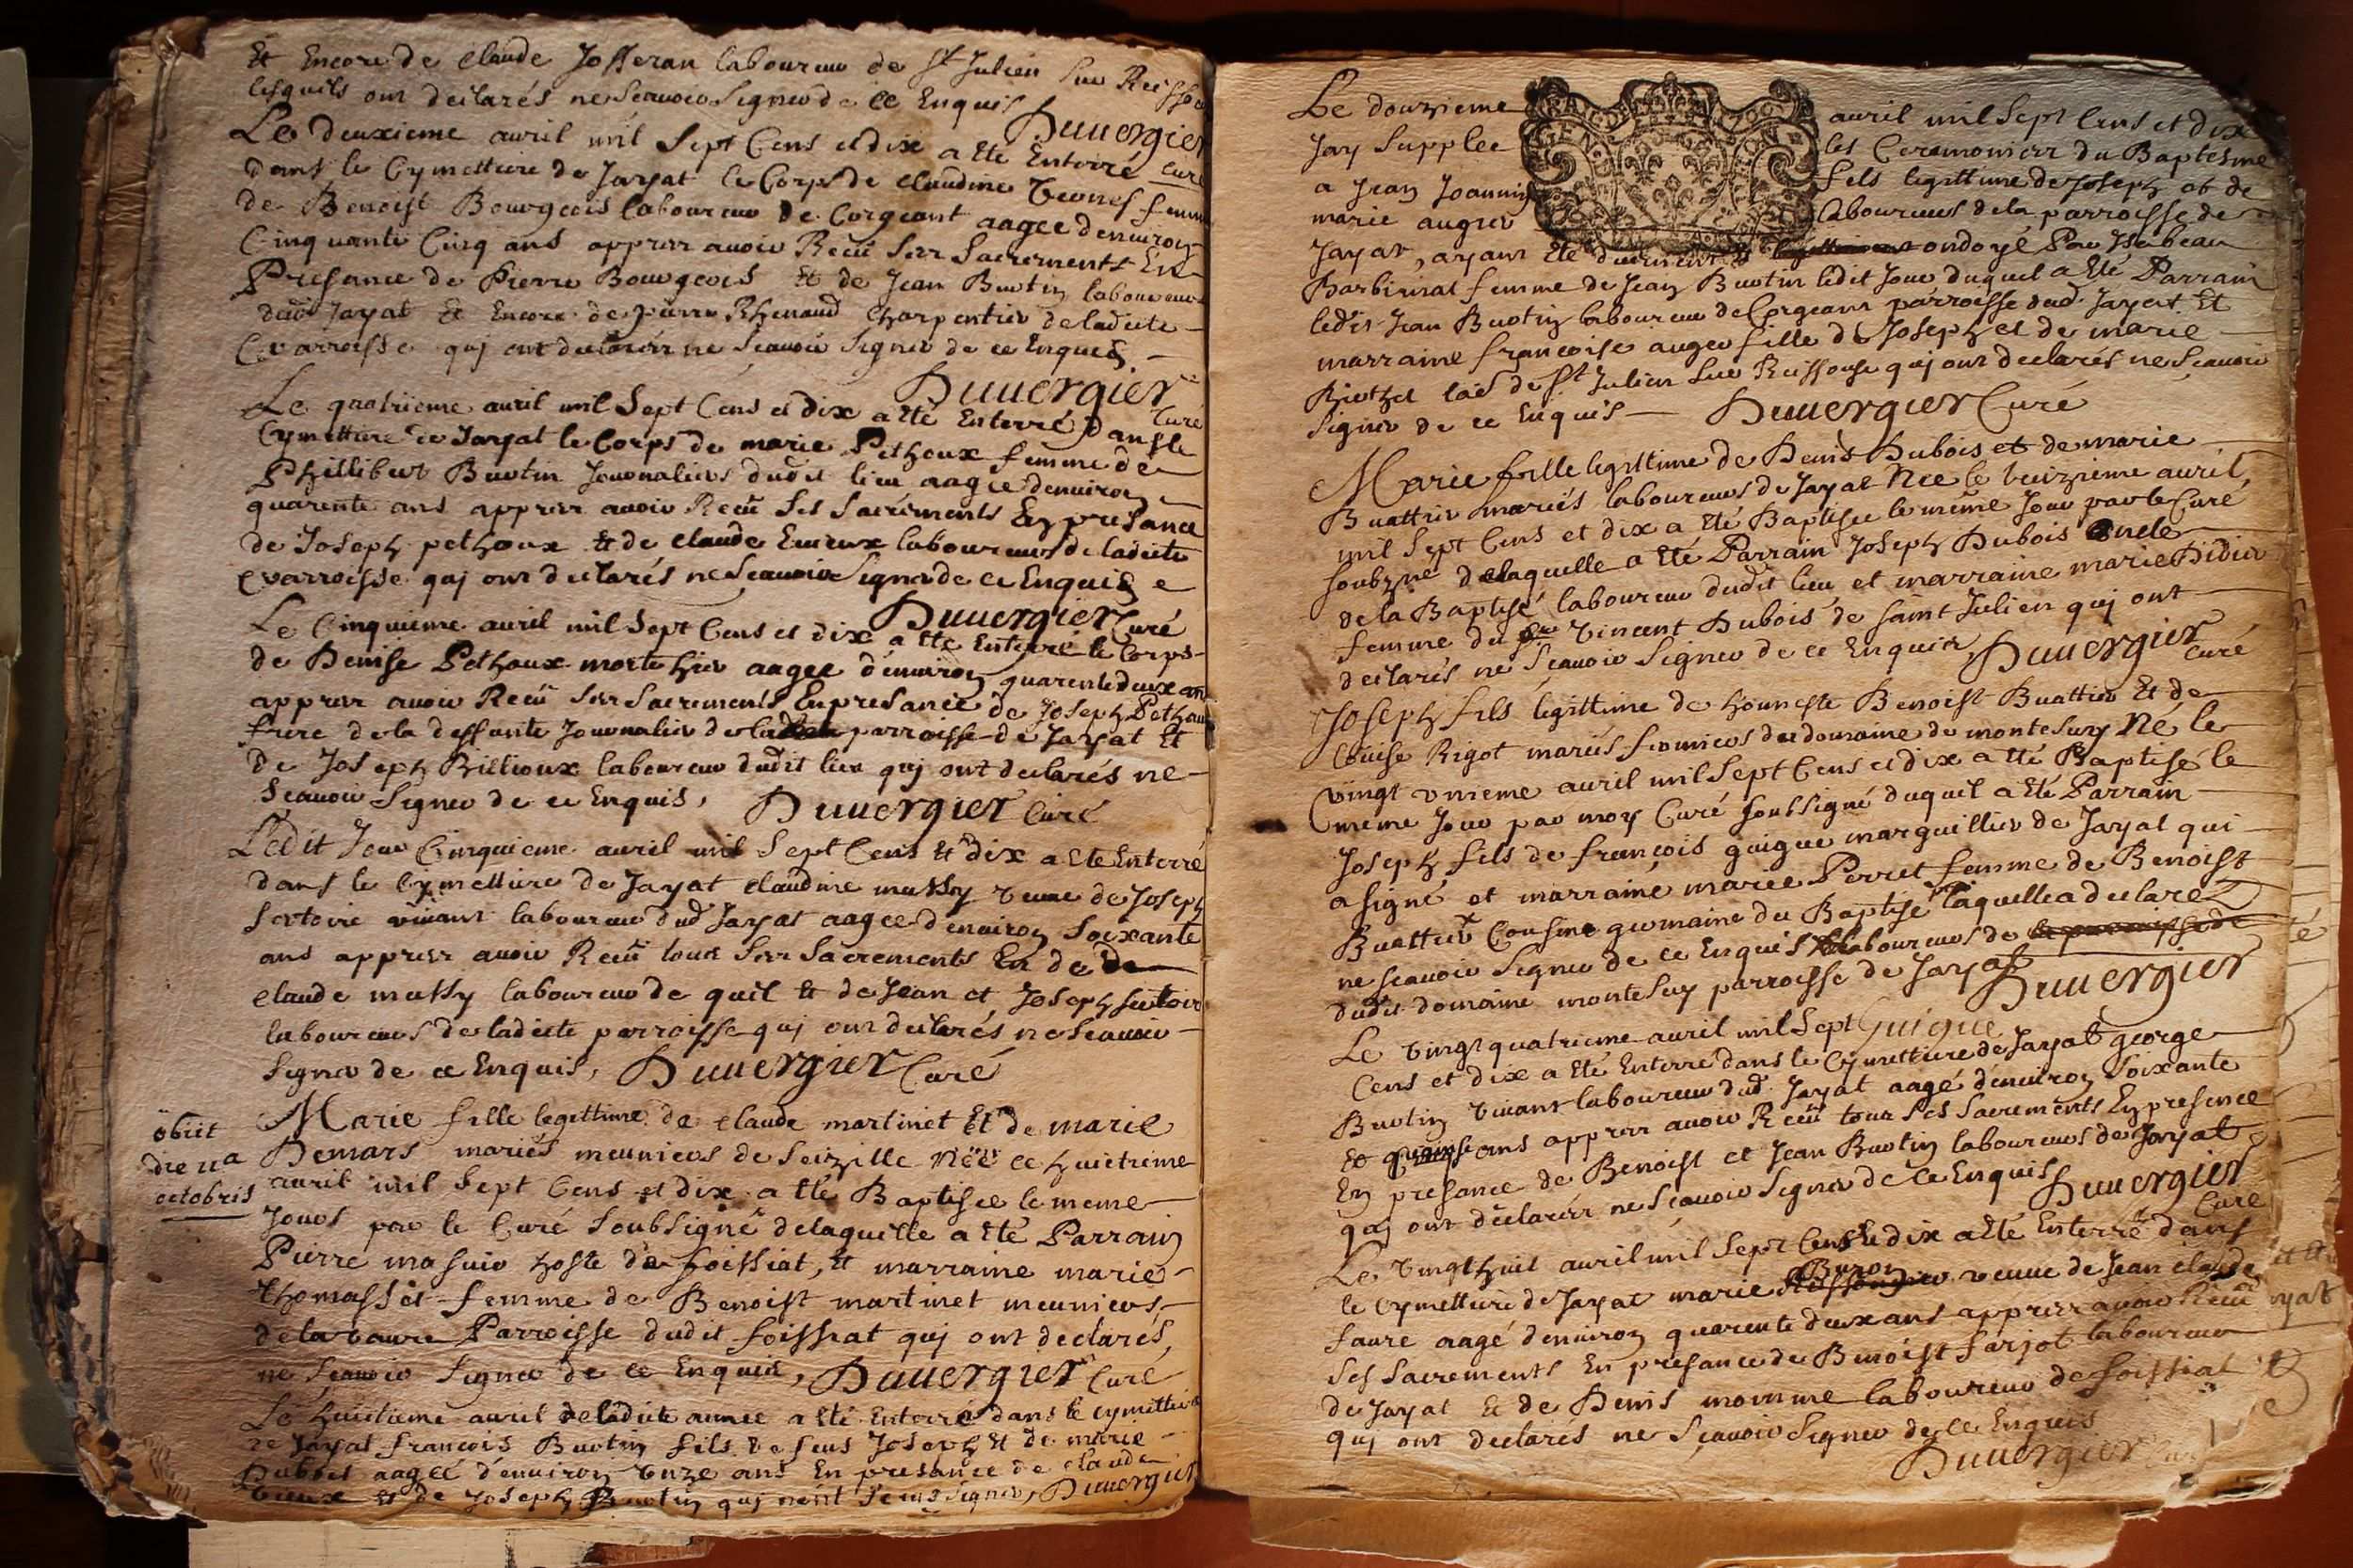 Et Encore de Claude Josseran laboureur de St Julien sur Reissou
lesquels ont declarés ne scavoir signer de ce Enquis
Duuergier
Curé
Le deuxieme auril mil Sept Cens et dix a Eté Enterré
dans le Cymettiere de Jayat le Corps de Claudine femme
de Benoist Bourgeois laboureur de Corgeant aagee denuiron
Cinquante Cinq ans apprez auoir Reçü ses Sacrements En
Presance de Pierre Bourgeois Et de Jean Buotin laboureurs
dud Jayat Et Encore de pierre Rhenaud Charpentier de ladite
parroisse quj ont declarez ne scauoir signer de ce Enquis
Duuergier
Curé
Le quatrieme auril mil Sept Cens et dix a Eté Enterré dans le
Cymettiere de Jayat le Corps de marie Pethoux femme de
Phillibert Buotin Journaliers dudit lieu aagee denuiron
quarente ans apprez auoir Reçü Ses Sacréments En presance
de Joseph pethoux Et de claude laboureurs de ladite
parroisse quj ont declarés ne Scauoir Signer de ce Enquis
Duuergier Curé
Le Cinquieme auril mil Sept Cens et dix a Eté Enterré le Corps
de Denise Pethoux morte hier aagee d'enuiron quarente deux an
apprez auoir Reçü ses Sacrements En presance de Joseph Pethou
frere de la deffunte Journalier de parroisse de Jayat Et
de Joseph Billioux laboureur dudit lieu quj ont declarés ne
Scauoir Signer de ce Enquis, Duuergier Curé
Ledit Jour Cinquieme auril mil Sept Cens Et dix a Eté Enterré
dans le Cymettiere de Jayat claudine mussy veuue de Joseph
Sertoire viuant laboureur dud Jayat aagee denuiron Soixante
ans apprez auoir Reçü tous ses Sacrements En de de
claude mussy laboureur de Et de Jean et Joseph Sertoir
laboureurs de ladite parroisse quj ont declarés ne Scauoir
Signer de ce Enquis, Duuergier Curé
obiit
die 11a
octobris
Marie fille legittime de claude martinet Et de marie
Demars mariés meuniers de Seizille Née le huictieme
auril mil Sept Cens et dix a Eté Baptisee le meme
Jours par le Curé Soubsigné delaquelle a Eté Parrain
Pierre masuir hoste de foissiat, Et marraine marie
thomasset femme de Benoist martinet meuniers
de la vaure Parroisse dudit foissiat quj ont declarés
ne Scauoir Signer de ce Enquis, Duuergier Curé
Le huictieme auril de ladite annee a Eté Enterré dans le cymettiere
de Jayat francois Buotin fils de feus Joseph Et de marie
Dubois aageé d'enuiron unze ans En presance de claude
Et de Joseph Buotin quj n'ont Sceus Signer, Duuergier
Le douzieme auril mil Sept Cens et dix
Jay Supplee les Ceremonies du Baptesme
a Jean Joannin fils legittime de Joseph et de
marie auger laboureurs de la parroisse de
Jayat, ayant Eté duement ondoyé Par Isabeau
Barbirat femme de Jean Buotin ledit Jour duquel a Eté Parrain
ledit Jean Buotin laboureur de Corgeant parroisse dud Jayat Et
marraine francoise auger fille de Joseph et de marie
de St Julien sur Reissouse quj ont declarés ne Scauoir
Signer de ce Enquis Duuergier Curé
Marie fille legittime de Denis Dubois et de marie
Buattier mariés laboureurs de Jayat Née le treizieme auril
mil Sept Cens et dix a Eté Baptisee le même Jour par le Curé
Soubzné delaquelle a Eté Parrain Joseph Dubois oncle
de la Baptisé laboureur dudit lieu et marraine marie Didier
femme du Sr Vincent Dubois de Saint Julien quj ont
declarés ne Scauoir Signer de ce Enquis Duuergier
Curé
Joseph fils legittime de honneste Benoist Buattier Et de
Louise Rigot mariés fermiers du domaine de montesuy Né le
vingt unieme auril mil Sept Cens et dix a Eté Baptisé le
meme Jour par moy Curé Soubsigné duquel a Eté Parrain
Joseph fils de françois guigue marguillier de Jayat qui
a signé et marraine marie Perret femme de Benoist
Buattier Cousine germaine du Baptisé laquelle a declaré
ne scauoir Signer de ce Enquis laboureurs de la parroisse de
dudit domaine montesuy parroisse de Jayat
Duuergier
Guigue
Le vingt quatrieme auril mil Sept
Cens et dix a Eté Enterré dans le Cymettiere de Jayat george
Buotin viuant laboureur dud Jayat aagé d'enuiron Soixante
Et quinse ans apprez auoir Reçü tous Ses Sacrements En presence
En presance de Benoist et Jean Buotin laboureurs de Jayat
quj ont declarez ne Scauoir Signer de ce Enquis Duuergier
Curé
Le vingt huit auril mil Sept Cens Et dix a Eté Enterré dans
le Cymettiere de Jayat marie Buron veuue de Jean claude
faure aagé denuiron quarente deux ans apprez auoir Reçü
Ses Sacrements En presance de Benoist farjot laboureur
de Jayat Et de Denis momme laboureur de foissiat
quj ont declarés ne Scauoir Signer de ce Enquis
Duuergier